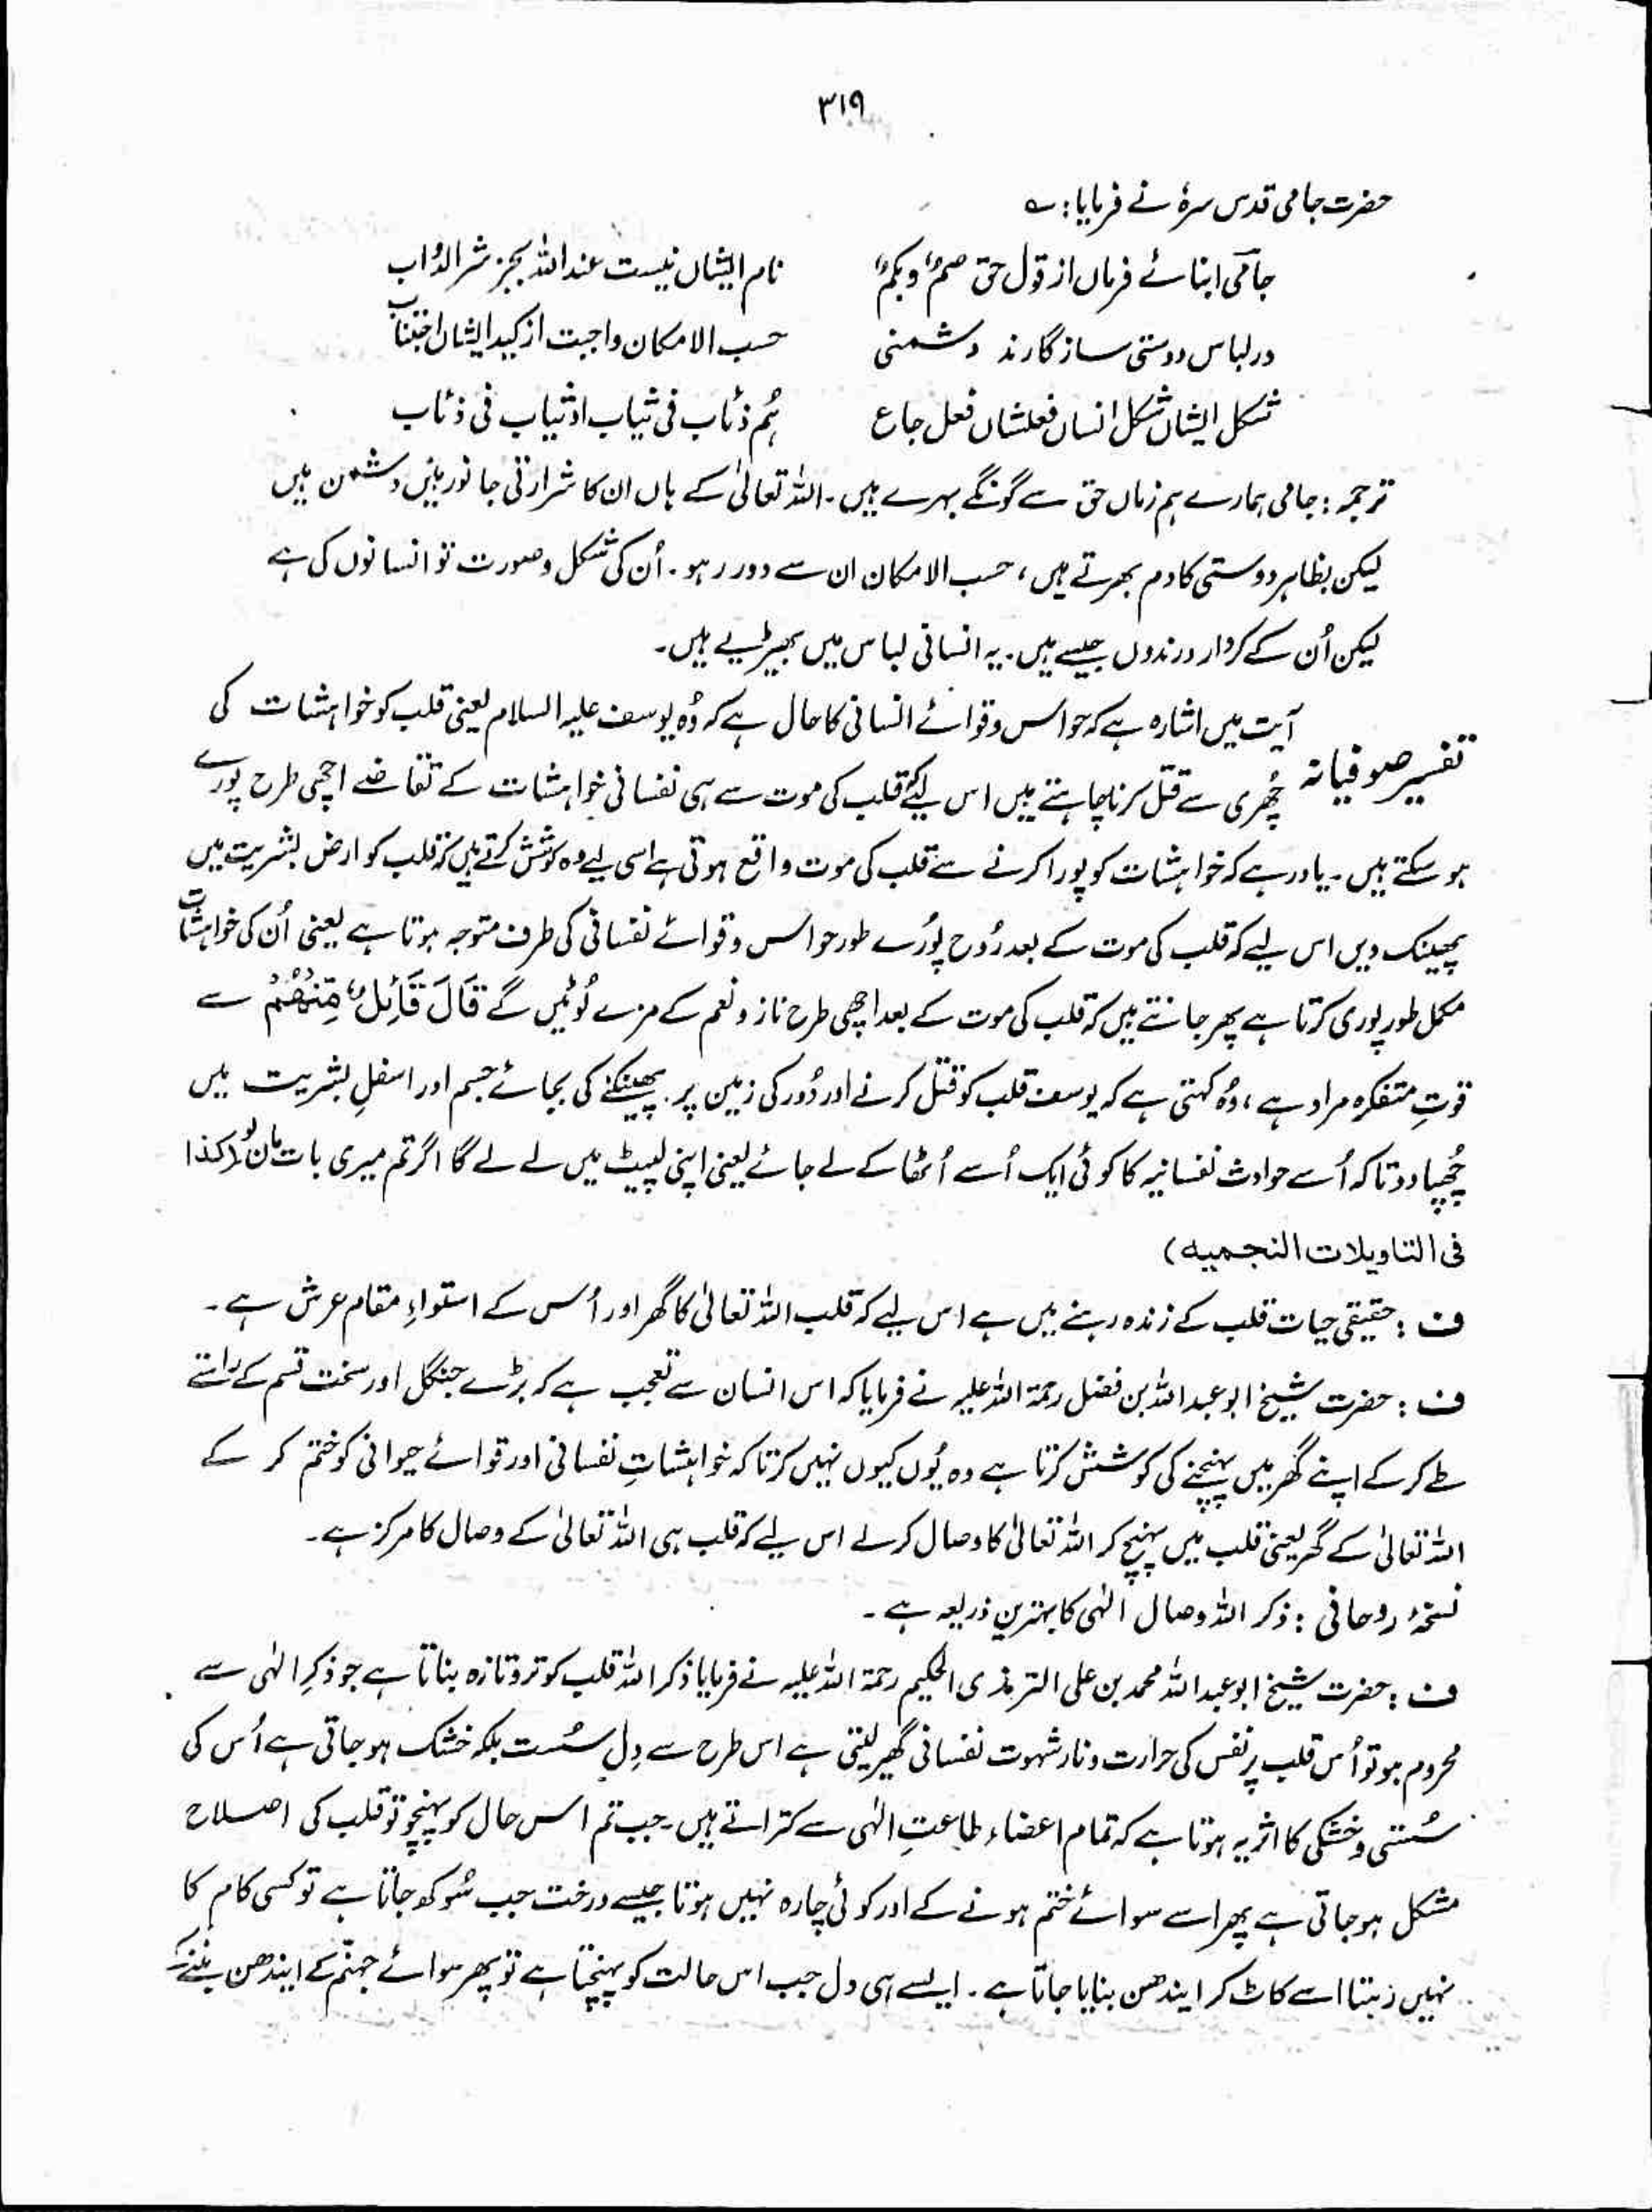 ۳۱۹
حضرت جامی قدس سرہٗ نے فرمایا: ے
جامی ابنائے فرماں از قول حق صمٌ و بکمٌ نام ایشاں نیست عند اللہ بجز شر الدُّواب
در لباس دوستی ساز گارند دشمنی حسب الامکان واجبت از کید ایشاں اجتناب
شکل ایشاں شکل انساں فعلشاں فعل جاع ہُم ذئاب فی ثیاب اذثیاب فی ذئاب
ترجمہ: جامی ہمارے ہم زماں حق سے گونگے بہرے ہیں۔ اللہ تعالیٰ کے ہاں ان کا شرارتی جانور ہیں دشمن ہیں
لیکن بظاہر دوستی کا دم بھرتے ہیں، حسب الامکان ان سے دور رہو۔ اُن کی شکل و صورت تو انسانوں کی ہے
لیکن اُن کے کردار درندوں جیسے ہیں۔ یہ انسانی لباس میں بھیڑیے ہیں۔
تفسیر صوفیانہ آیت میں اشارہ ہے کہ حواس و قوائے انسانی کا حال ہے کہ وُہ یوسف علیہ السلام یعنی قلب کو خواہشات کی
چُھری سے قتل کرنا چاہتے ہیں اس لیے کہ قلب کی موت سے ہی نفسانی خواہشات کے تقاضے اچھی طرح پورے
ہو سکتے ہیں۔ یاد رہے کہ خواہشات کو پورا کرنے سے قلب کی موت واقع ہوتی ہے اسی لیے وہ کوشش کرتے ہیں کہ قلب کو ارض بشریت میں
پھینک دیں اس لیے کہ قلب کی موت کے بعد رُوح پُورے طور حواس و قوائے نفسانی کی طرف متوجہ ہوتا ہے یعنی اُن کی خواہشات
مکمل طور پوری کرتا ہے پھر جانتے ہیں کہ قلب کی موت کے بعد اچھی طرح ناز و نعم کے مزے لُوٹیں گے قَالَ قَائِلٌ مِّنْهُمْ سے
قوتِ متفکرہ مراد ہے، وُہ کہتی ہے کہ یوسف قلب کو قتل کرنے اور دُور کی زمین پر پھینکنے کی بجائے جسم اور اسفلِ بشریت میں
چُھپا دو تاکہ اُسے حوادث نفسانیہ کا کوئی ایک اُسے اُٹھا کے لے جائے یعنی اپنی لپیٹ میں لے لے گا اگر تم میری بات مان لو (کذا
فی التاویلات النجمیہ)
ف: حقیقی حیات قلب کے زندہ رہنے میں ہے اس لیے کہ قلب اللہ تعالیٰ کا گھر اور اُس کے استواءِ مقام عرش ہے۔
ف: حضرت شیخ ابوعبداللہ بن فضل رحمۃ اللہ علیہ نے فرمایا کہ اس انسان سے تعجب ہے کہ بڑے جنگل اور سخت قسم کے راستے
طے کر کے اپنے گھر میں پہنچنے کی کوشش کرتا ہے وہ یُوں کیوں نہیں کرتا کہ خواہشاتِ نفسانی اور قوائے حیوانی کو ختم کر کے
اللہ تعالیٰ کے گھر یعنی قلب میں پہنچ کر اللہ تعالیٰ کا وصال کرلے اس لیے کہ قلب ہی اللہ تعالیٰ کے وصال کا مرکز ہے۔
نسخۂ روحانی: ذکر اللہ وصال الٰہی کا بہترین ذریعہ ہے۔
ف: حضرت شیخ ابوعبداللہ محمد بن علی الترمذی الحکیم رحمۃ اللہ علیہ نے فرمایا ذکر اللہ قلب کو تروتازہ بناتا ہے جو ذکرِ الٰہی سے
محروم ہو تو اُس قلب پر نفس کی حرارت و نار شہوت نفسانی گھیر لیتی ہے اس طرح سے دِل سُست بلکہ خشک ہو جاتی ہے اُس کی
سُستی و خشکی کا اثر یہ ہوتا ہے کہ تمام اعضاء طاعتِ الٰہی سے کتراتے ہیں۔ جب تم اس حال کو پہنچو تو قلب کی اصلاح
مشکل ہو جاتی ہے پھر اسے سوائے ختم ہونے کے اور کوئی چارہ نہیں ہوتا جیسے درخت جب سُوکھ جاتا ہے تو کسی کام کا
نہیں رہتا اسے کاٹ کر ایندھن بنایا جاتا ہے۔ ایسے ہی دل جب اس حالت کو پہنچتا ہے تو پھر سوائے جہنّم کے ایندھن بننے کے